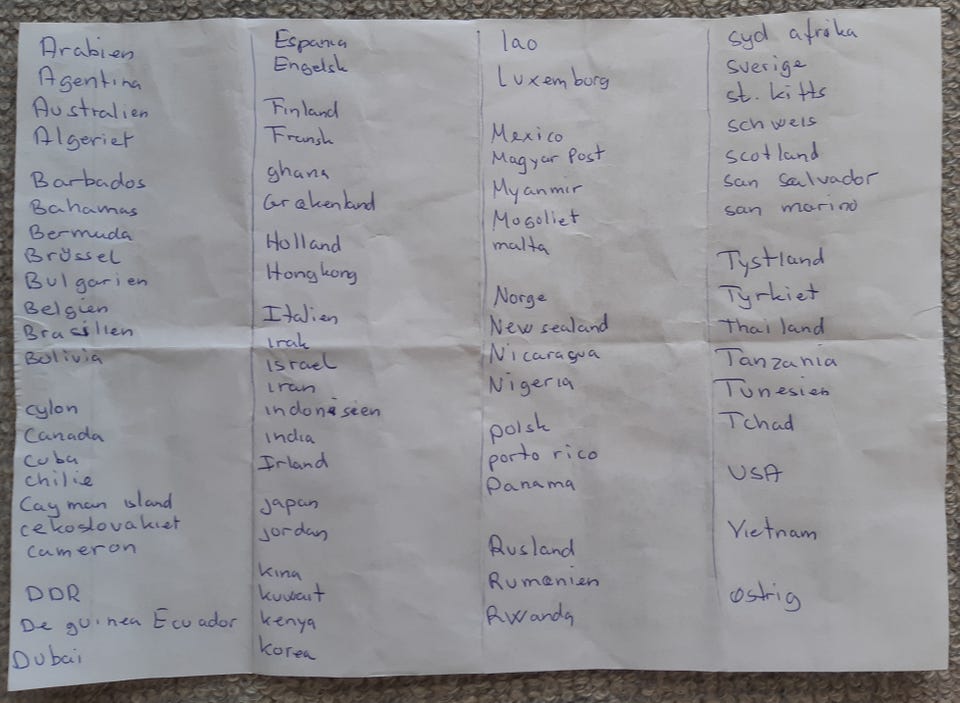 Arabien
Agentina
Australien
Algeriet
Barbados
Bahamas
Bermuda
Brüssel
Bulgarien
Belgien
Brasilien
Bolivia
cylon
Canada
Cuba
chilie
Cayman island
cekoslovakiet
cameron
DDR
De guinea Ecuador
Dubai
Espania
Engelsk
Finland
Fransk
ghana
Grækenland
Holland
Hongkong
Italien
irak
israel
iran
indonesien
india
Irland
japan
jordan
kina
kuwait
kenya
korea
lao
Luxemborg
Mexico
Magyar Post
Myanmir
Mogoliet
malta
Norge
New sealand
Nicaragua
Nigeria
polsk
porto rico
Panama
Rusland
Rumænien
Rwanda
syd afrika
sverige
st. kitts
schweis
scotland
san salvador
san marino
Tystland
Tyrkiet
thailand
Tanzania
Tunesien
Tchad
USA
Vietnam
østrig